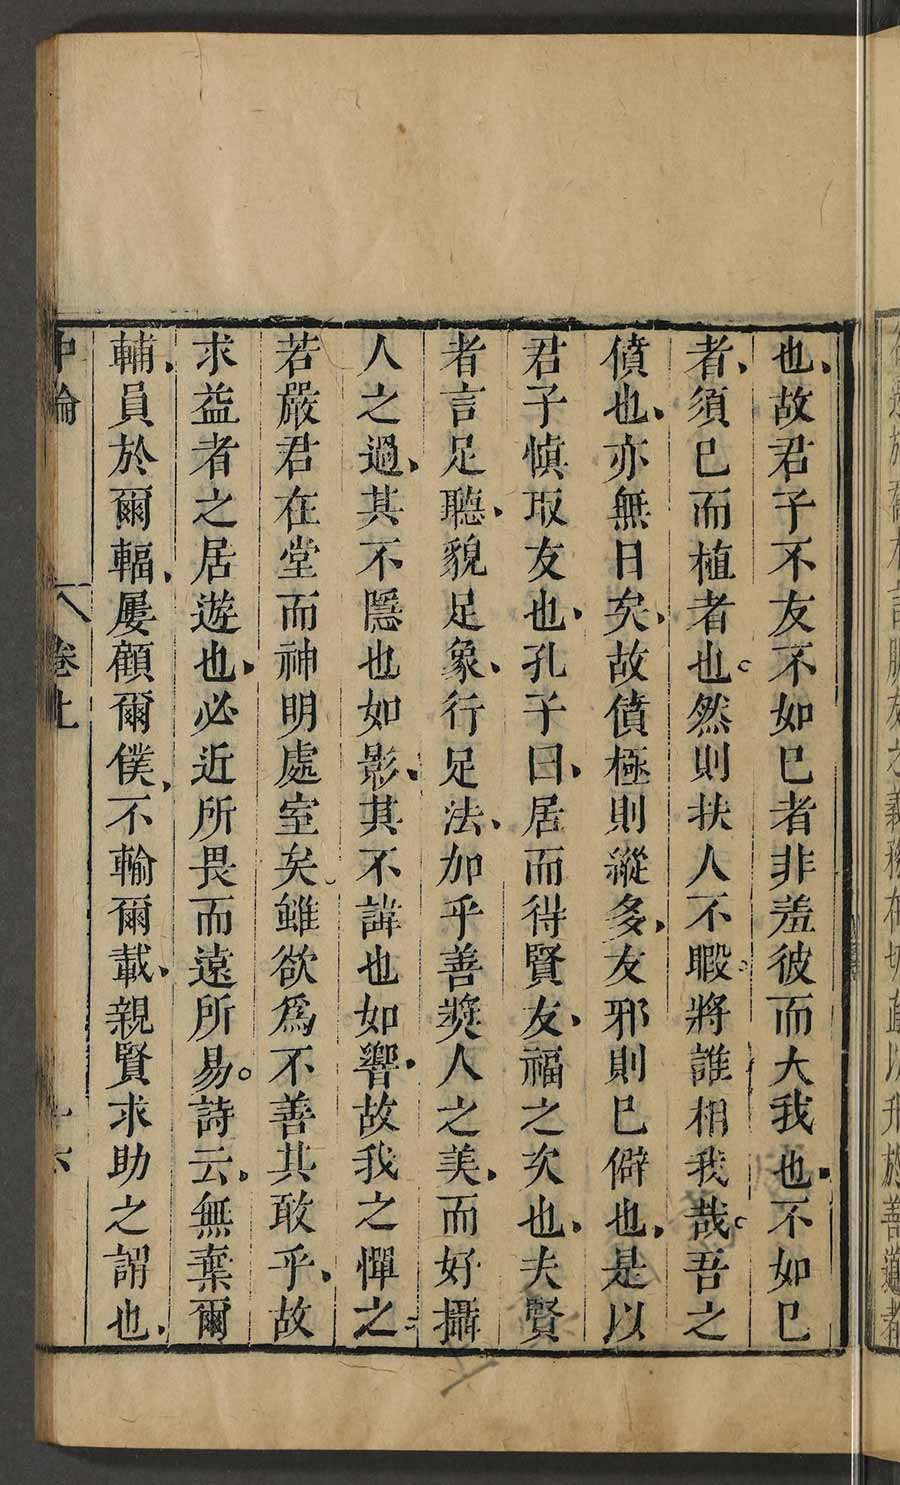 也故君子不友不如已者非羞彼而大我也不如已
者須已而植者也然則扶人不暇將誰相我哉吾之
僨也亦無日矣故僨極則縱多友邪則已僻也是以
君子慎取友也孔子曰居而得賢友福之次也夫賢
者言足聽貌足象行足法加乎善奬人之美而好攝
人之過其不隱也如影其不諱也如響故我之憚之
若嚴君在堂而神明處室矣雖欲爲不善其敢乎故
求益者之居遊也必近所畏而遠所易詩云無棄爾
輔員於爾輻屢顧爾僕不輸爾載親賢求助之謂也
中論 卷上